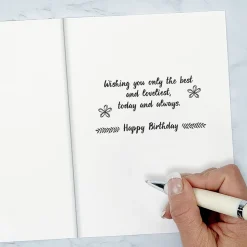 Wishing you only the best
and loveliest,
today and always.
Happy Birthday